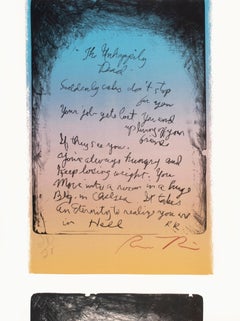 The Unhappily
Dead
Suddenly cabs don't stop
for you
Your job gets lost You end
up living off your
friends
If they see you.
Your always hungry and
Keep losing weight. You
Move into a room in a huge
Bldg. in Chelsea It takes
An Eternity to realize you're
in Hell RR